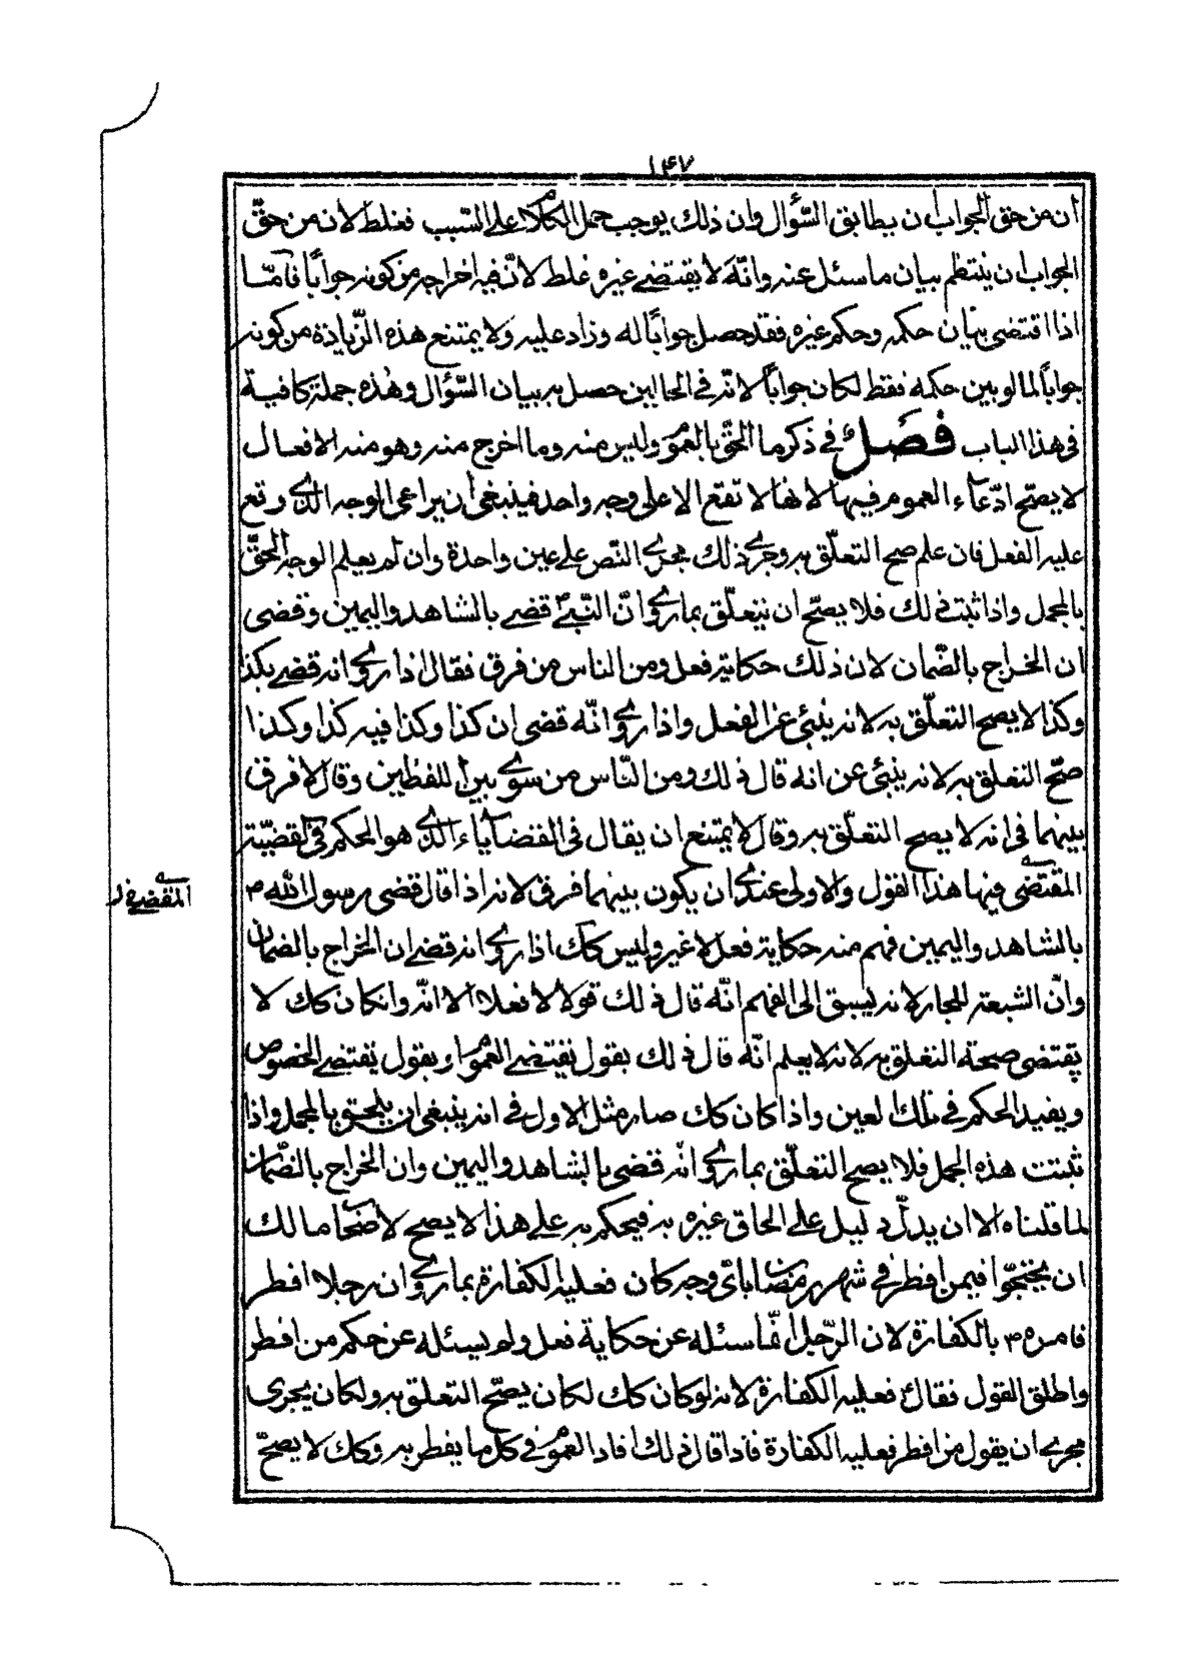 ١٤٧
ان من حق الجواب ان يطابق السّؤال وان ذلك يوجب حمل الكلام على السّبب فغلط لان من حقّ
الجواب ان ينتظم بيان ما سئل عنه وانّه لا يقتضى غيره غلط لانّ فيه اخراجه من كونه جوابًا فامّا
اذا اقتضى بيان حكمه وحكم غيره فقد حصل جوابًا له وزاد عليه ولا يمتنع هذه الزّيادة من كونه
جوابًا لما لو بين حكمه فقط لكان جوابًا لانّه فى الحالين حصل به بيان السّؤال وهذه جملة كافية
فى هذا الباب فصل فى ذكر ما الحق بالعموم وليس منه وما اخرج منه وهو منه الافعال
لا يصحّ ادّعاء العموم فيها لانها لا تقع الا على وجه واحد فينبغى ان يراعى الوجه الذى وقع
عليه الفعل فان علم صح التعلّق به وجرى ذلك مجرى النّص على عين واحدة وان لم يعلم الوجه الحق
بالمجمل واذا ثبت ذلك فلا يصحّ ان يتعلّق بما روى انّ النّبىّ قضى بالشاهد واليمين وقضى
ان الخراج بالضّمان لان ذلك حكاية فعل ومن الناس من فرق فقال اذا روى انه قضى بكذا
وكذا لا يصح التعلّق به لانه ينبئ عن الفعل واذا روى انّه قضى ان كذا وكذا فيه كذا وكذا
صحّ التعلق به لانه ينبئ عن انه قال ذلك ومن النّاس من سوى بين اللفظين وقال لا فرق
بينهما فى انه لا يصح التعلّق به وقال لا يمتنع ان يقال فى القضاياء الذى هو الحكم فى لقضيّة
المقتضى فيها هذا القول والاولى عندى ان يكون بينهما فرق لانه اذا قال قضى رسول الله ص
المقضى فيه ل
بالشاهد واليمين فهم منه حكاية فعل لا غير وليس كك اذا روى انه قضى ان الخراج بالضمان
وانّ الشبعة للجار لانه يسبق الى الفهم انّه قال ذلك قولا لا فعلا الا انّه وان كان كك لا
يقتضى صحة التعلق به لانه لا يعلم انّه قال ذلك بقول يقتضى العموم او بقول يقتضى الخصوص
ويفيد الحكم فى تلك العين واذا كان كك صار مثل الاول فى انه ينبغى ان يلحق بالمجمل واذا
ثبتت هذه الجمل فلا يصح التعلّق بما روى انّه قضى بالشاهد واليمين وان الخراج بالضّمان
لما قلناه الا ان يدلّ دليل على الحاق غيره به فيحكم به على هذا لا يصح لاصحاب مالك
ان يحتجّوا فيمن افطر فى شهر رمضان باىّ وجه كان فعليه الكفارة بما روى ان رجلا افطر
فامره ص بالكفارة لان الرّجل انّما سئله عن حكاية فعل ولم يسئله عن حكم من افطر
واطلق القول فقال فعليه الكفارة لانه لو كان كك لكان يصحّ التعلق به ولكان يجرى
مجرى ان يقول من افطر فعليه الكفارة فاذا قال ذلك افاد العموم فى كل ما يفطر به وكك لا يصحّ